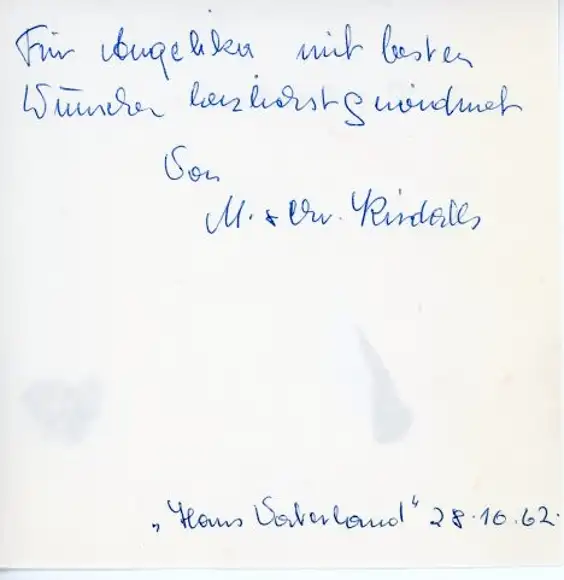 Für Angelika mit besten
Wünschen herzlichst gewidmet
Von
M. + Chr.
„Haus Vaterland“ 28.10.62.